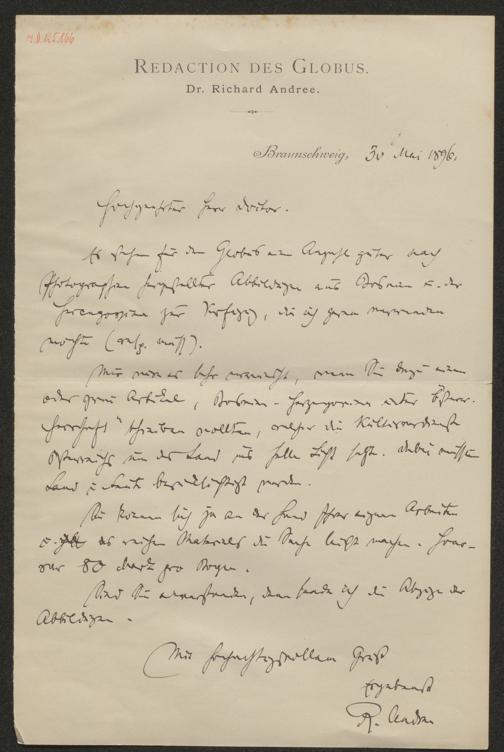 REDACTION DES GLOBUS.
Dr. Richard Andree.
Braunschweig, 30 Mai 1896.
Hochgeehrter Herr Doctor.
Es stehen für den Globus eine Anzahl guter nach
Photographien hergestellter Abbildungen aus Bosnien u. der
Herzegowina zur Verfügung, die ich gern verwenden
möchte (resp. muß).
Mir wäre es sehr erwünscht, wenn Sie dazu einen
oder zwei Artikel, Bosnien-Herzegowina unter Österr.
Herrschaft" schreiben wollten, welcher die Kulturarbeit
Österreichs um das Land ins helle Licht setzt. Dabei müssen
Land u. Leute berücksichtigt werden.
Sie können sich ja an der Hand Ihrer eigenen Arbeiten
u. des reichen Materials die Sache leicht machen. Hono-
rar 80 Mark pro Bogen.
Sind Sie einverstanden, dann sende ich die Abzüge der
Abbildungen.
Mit hochachtungsvollem Gruß
Ergebenst
R. Andree